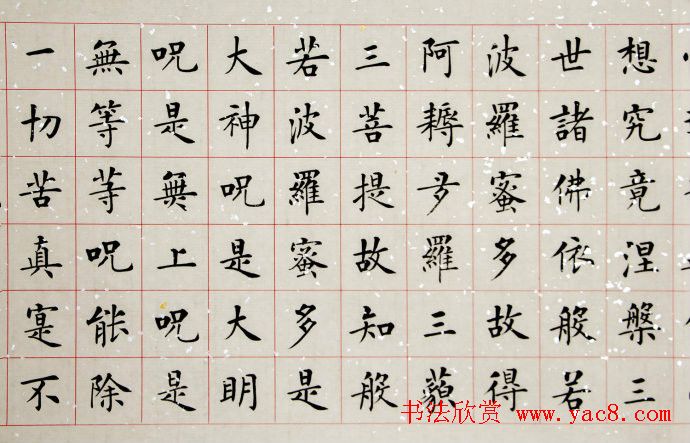 想究竟涅槃三
世諸佛依般若
波羅蜜多故得
阿耨夛羅三藐
三菩提故知般
若波羅蜜多是
大神呪是大明
呪是無上呪是
無等等呪能除
一切苦真寔不
书法欣赏 www.yac8.com